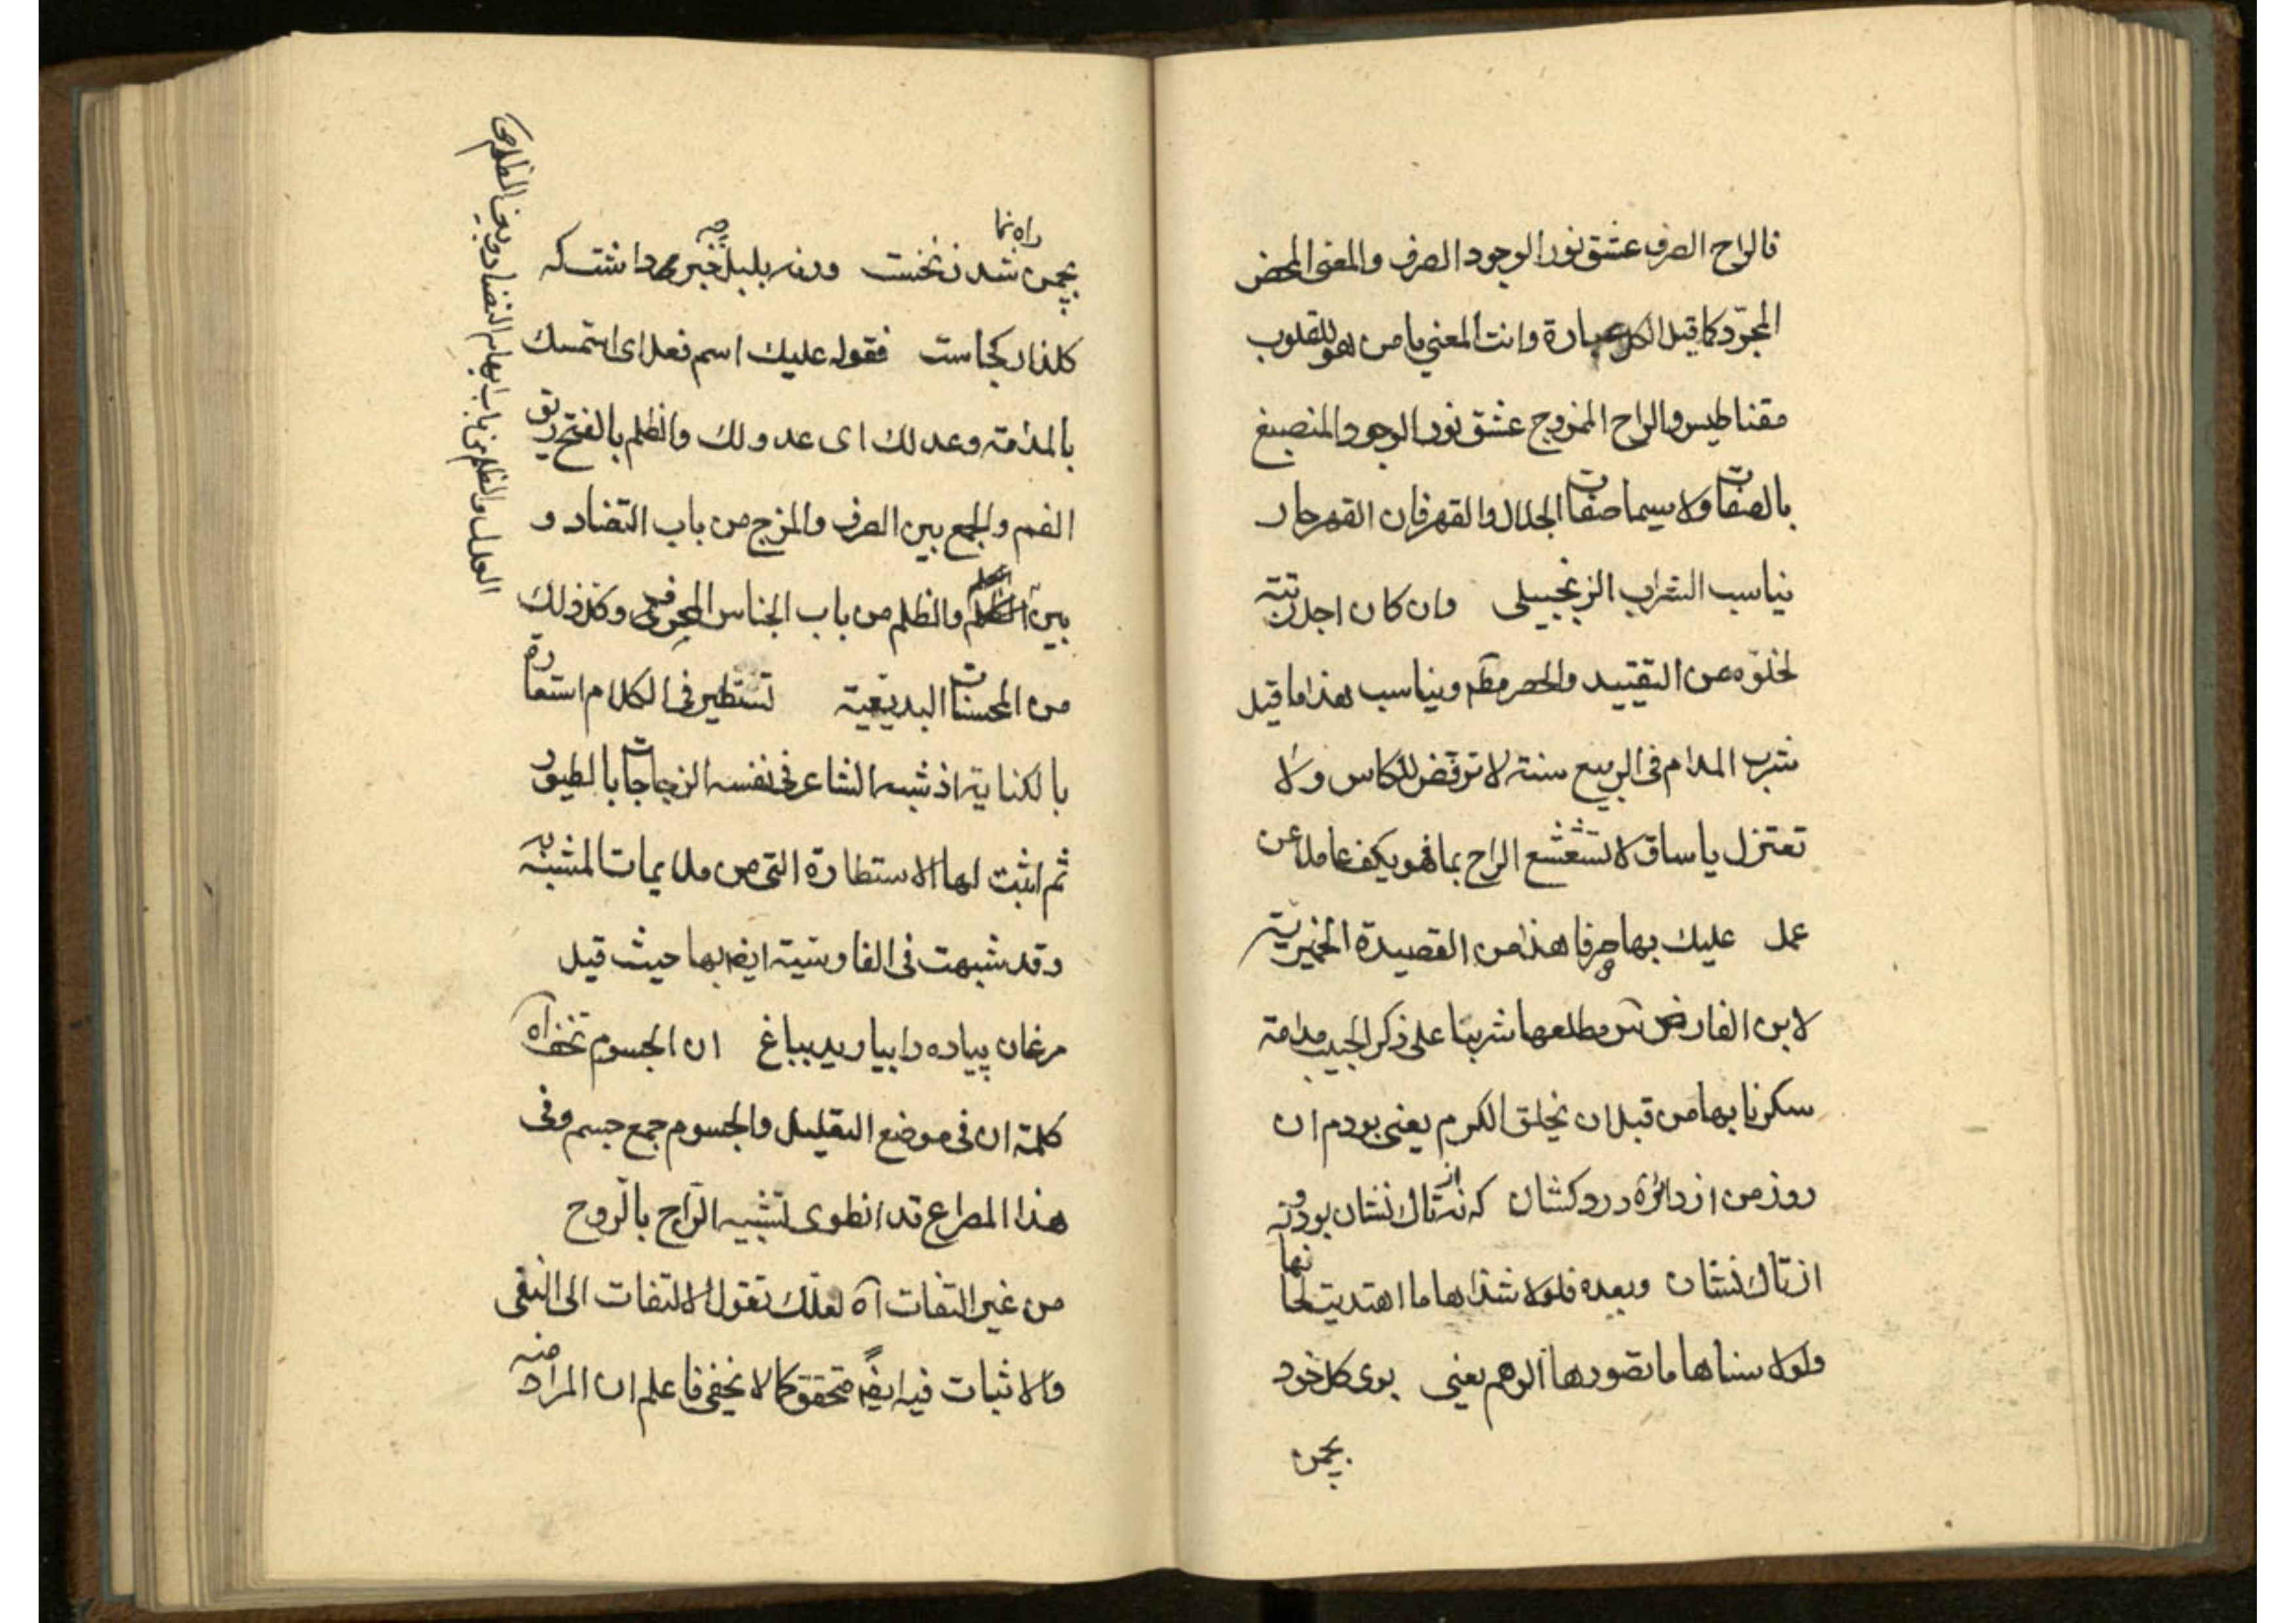 فالراح الصرف عشق نور الوجود الصرف والمعنى المحض
المجرّد كما قيل الكل عبارة وانت المعنى يا من هو للقلوب
مقناطيس والراح الممزوج عشق نور الوجود المنصبغ
بالصفات ولا سيما صفات الجلال والقهر فان القهر حار
يناسب الشراب الزنجبيلى وان كان اجل رتبة
لخلوّه عن التقييد والحصر مطم ويناسب هذا ما قيل
شرب المدام فى الربيع سنة لا ترفض للكاس ولا
تعتزل يا ساق لا تشعشع الراح بما فهو يكف عاملا عن
عمل عليك بها صرفا هذا من القصيدة الخمرية
لابن الفارض س مطلعها شربنا على ذكر الحبيب مدامة
سكرنا بها من قبل ان يخلق الكرم يعنى بودم ان
روز من از دائرة دردكشان كه نه از تاك نشان بود ونه
از تاك نشان وبعده فلولا شذاها ما اهتديت لحانها
ولولا سناها ما تصورها الوهم يعنى بوى كل خود
بچمن
بچمن راه نما شد ز نخست ورنه بلبل چه خبر داشت كه
كلزار كجاست فقوله عليك اسم فعل اى استمسك
بالمدامة وعدلك اى عدولك والظلم بالفتح ريق
الفم والجمع بين الصرف والمزج من باب التضاد و
بين الظلم والظلم من باب الجناس المحرف وكذلك
من المحسنات البديعية تستطير فى الكلام استعارة
بالكناية اذ شبه الشاعر فى نفسه الزجاجات بالطيور
ثم اثبت لها الاستطارة التى من ملايمات المشبه به
وقد شبهت فى الفارسية ايض بها حيث قيل
مرغان پياده را بياريد بباغ ان الجسوم تخف اه
كلمة ان فى موضع التعليل والجسوم جمع جسم وفى
هذا المصراع قد انطوى تشبيه الرّاح بالرّوح
من غير التفات آه لعلّك تقول الالتفات الى النفى
والاثبات فيه ايضً متحقق كما لا يخفى فاعلم ان المراد منه
العدل والظلم من باب ايهام التضاد وبين الظلم